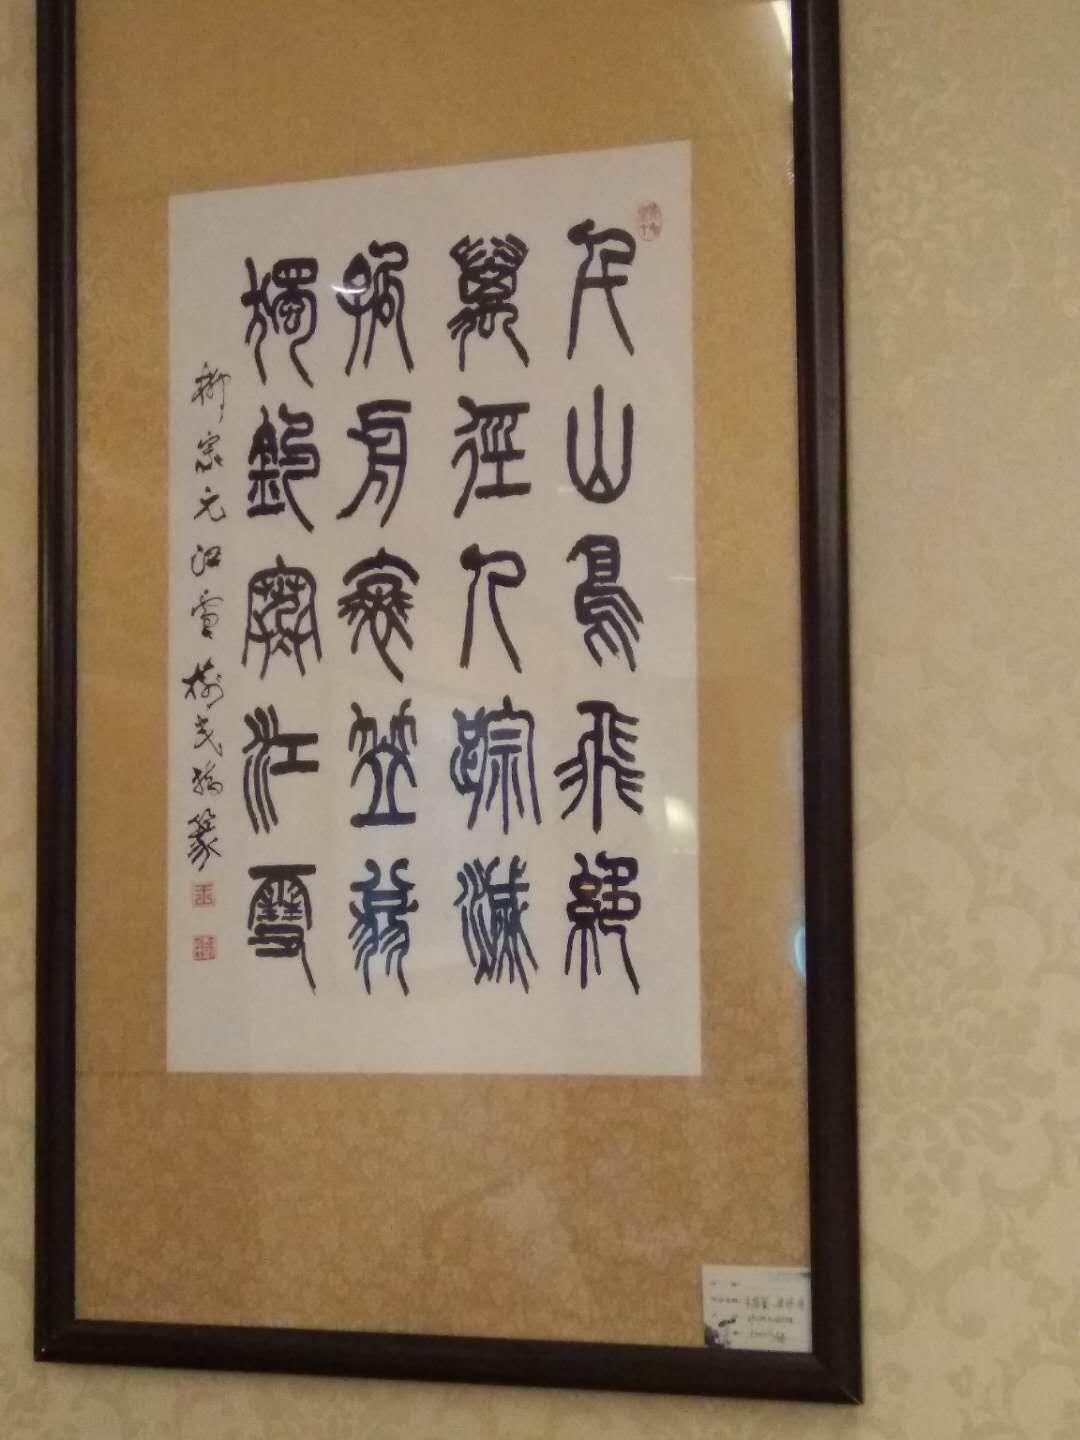 千山鳥飛絕
萬徑人踪滅
孤舟蓑笠翁
獨釣寒江雪
柳宗元江雪
篆